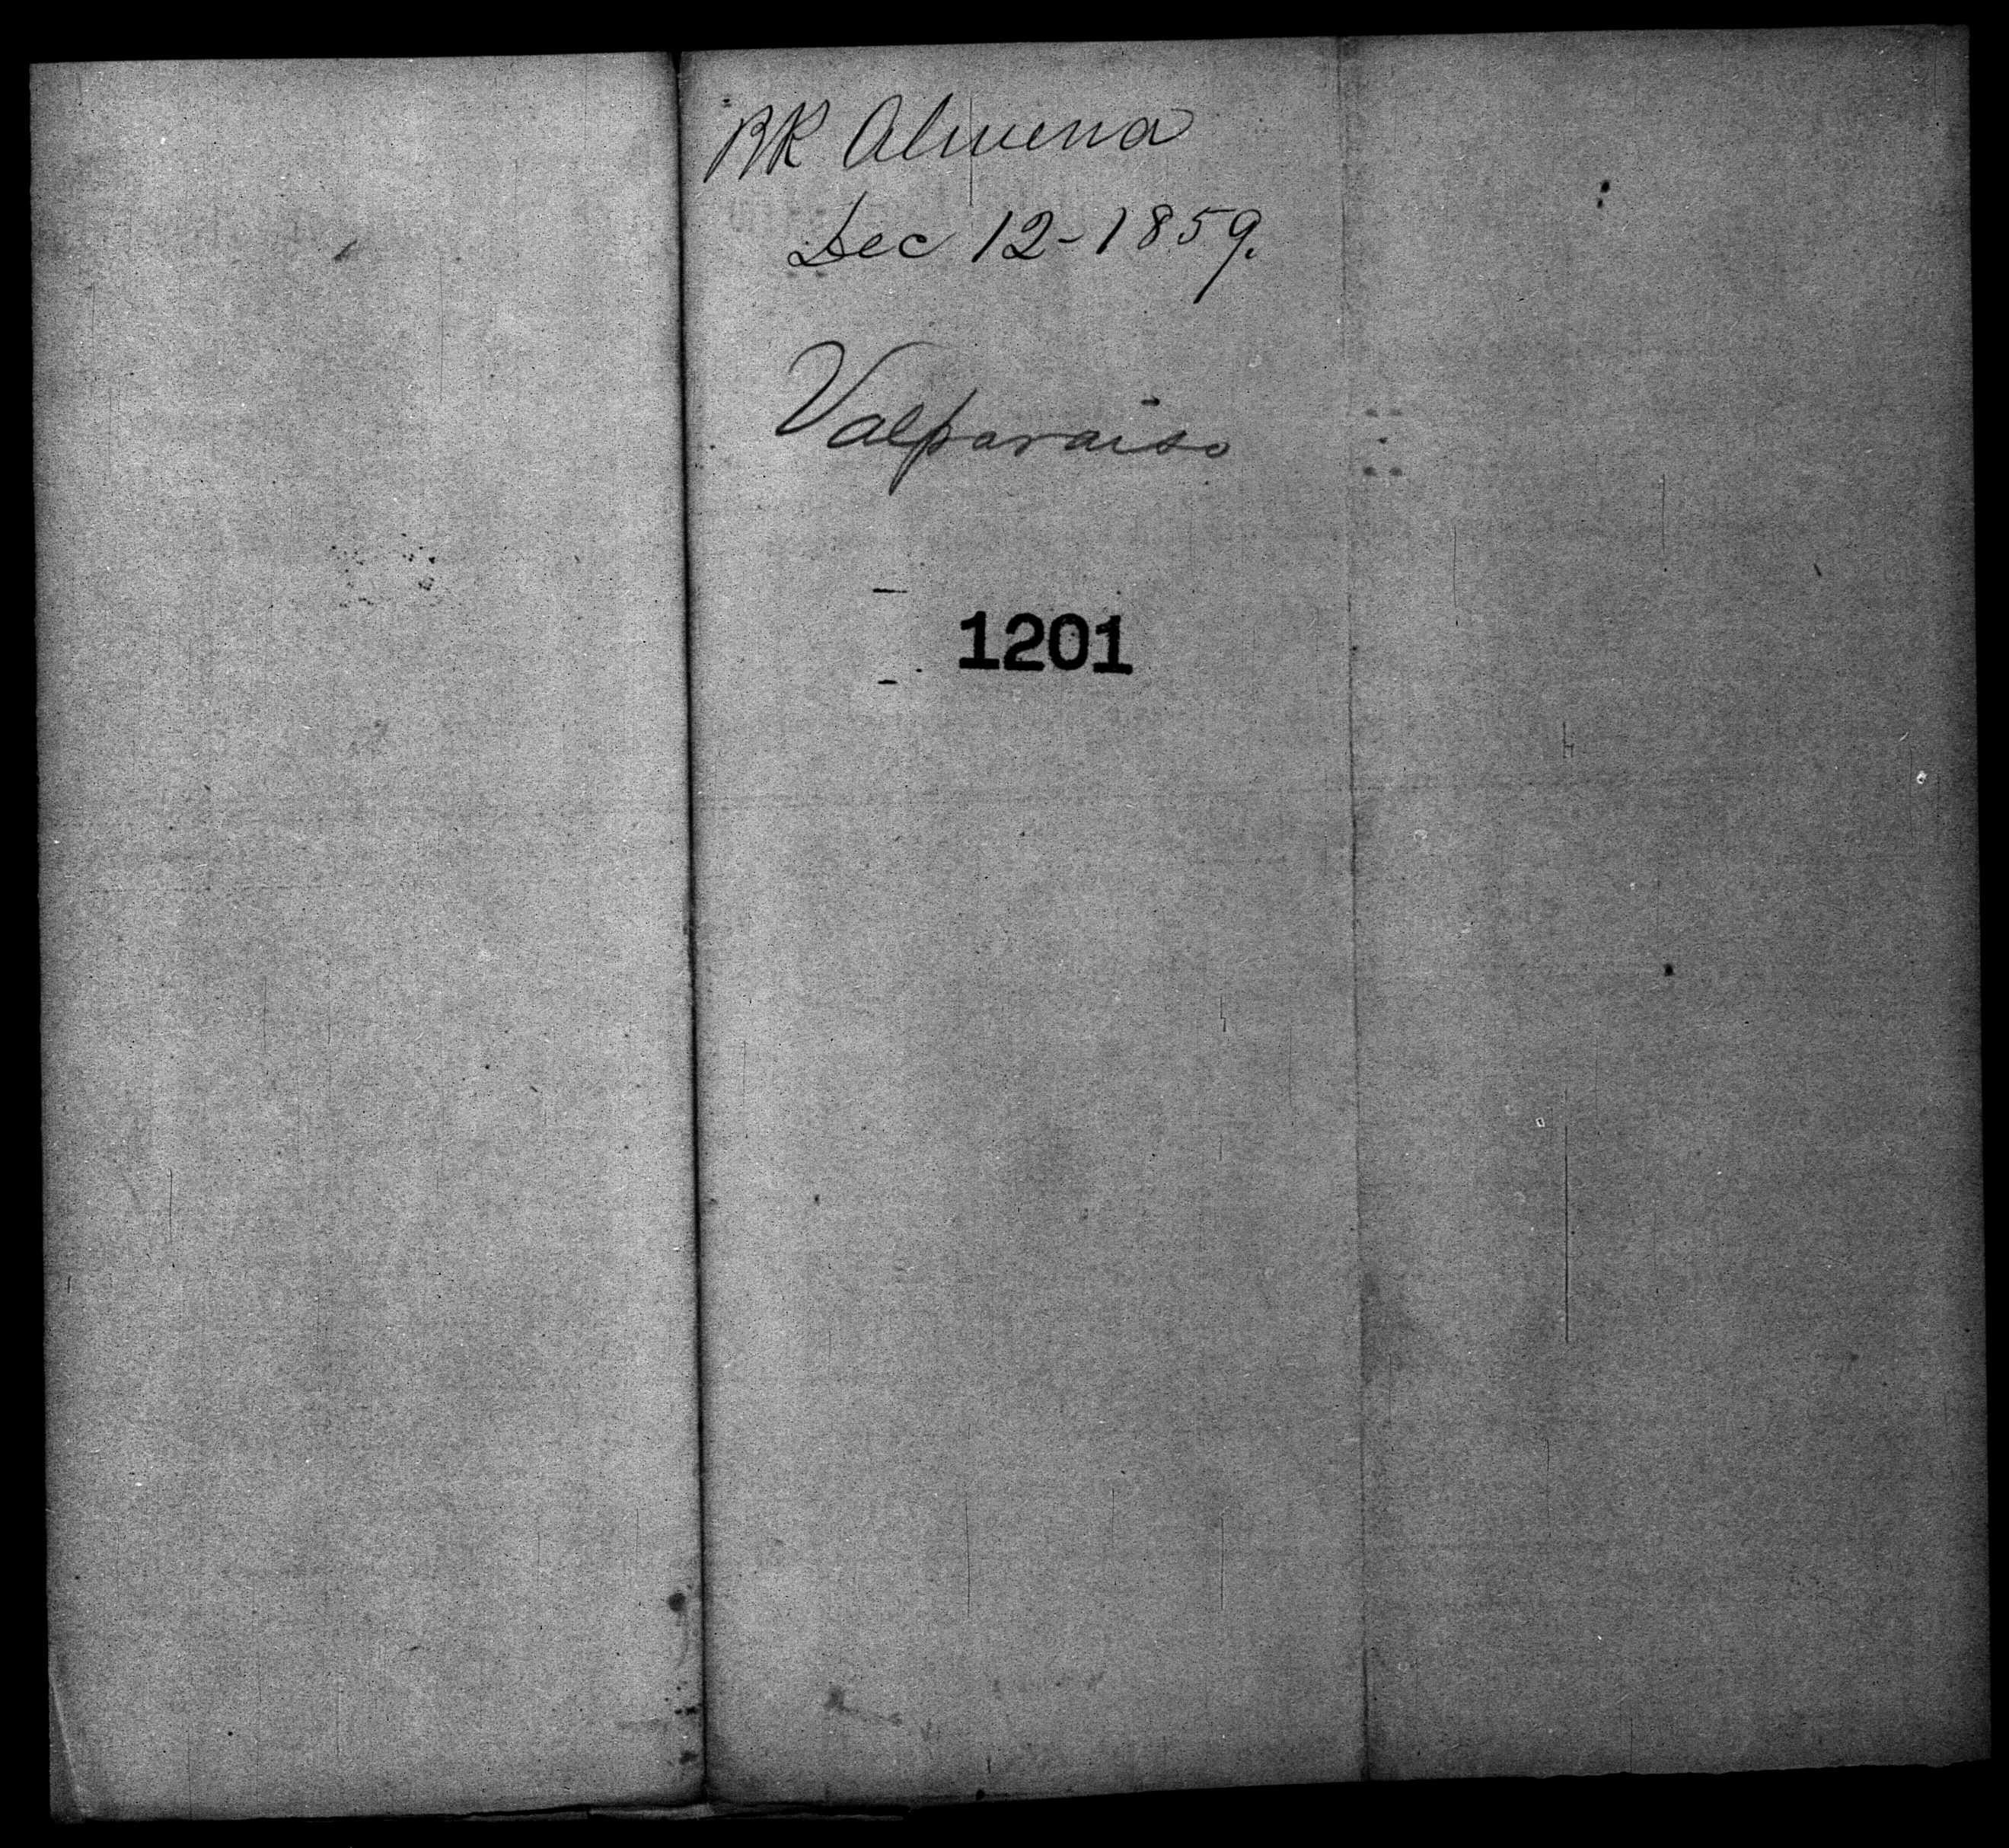 BK Almena
Dec 12-1859.
Valparaiso
1201